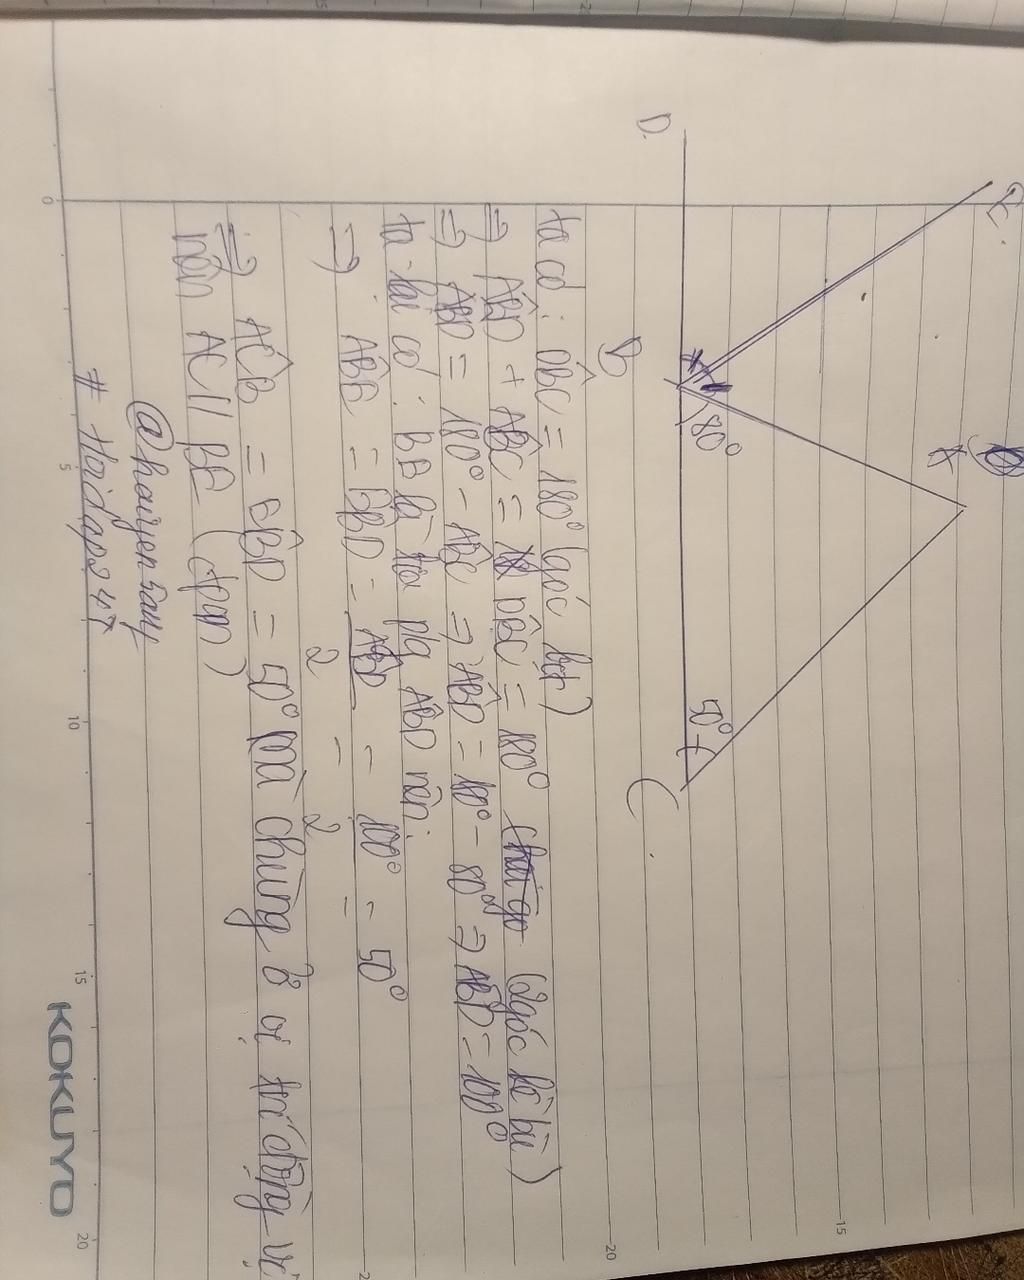 E.
A
D.
B
80°
50°
C
ta có: DBC = 180° (góc bẹt)
⇒ ABD + ABC = DBC = 180° (2 góc kề bù)
⇒ ABD = 180° - ABC ⇒ ABD = 180° - 80° ⇒ ABD = 100°
ta lại có: BE là tia pg ABD nên:
⇒ ABE = EBD = ABD/2 = 100°/2 = 50°
⇒ ACB = EBD = 50° mà chúng ở vị trí đồng vị
nên AC // BE (đpcm)
@haiyensany
# hoidap247
0
5
10
15
20
15
20
KOKUYO